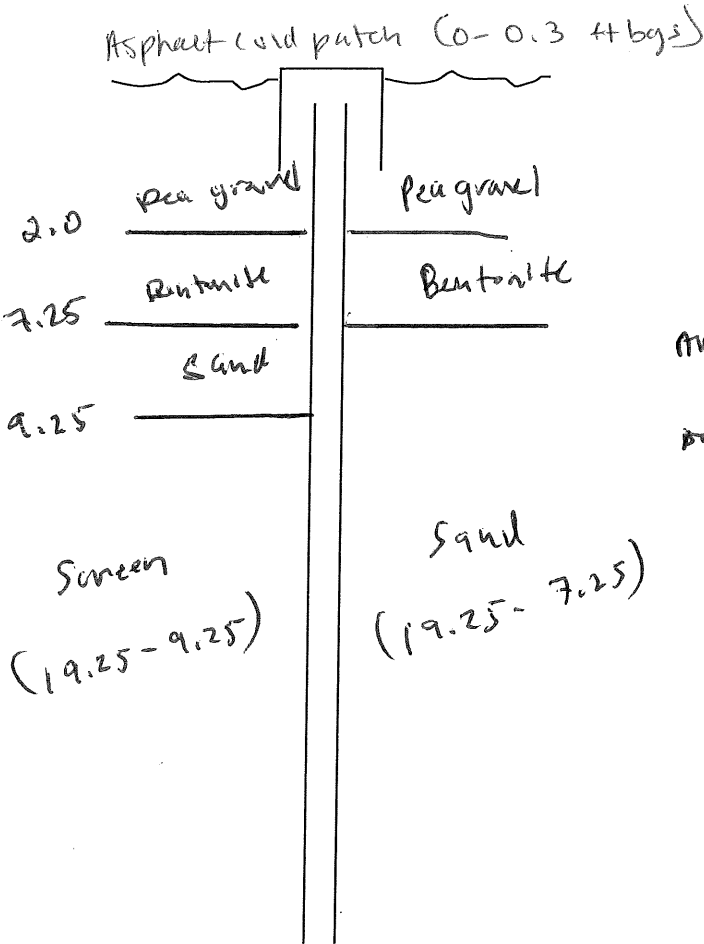 Asphalt cold patch (0-0.3 ft bgs)
Pea gravel Pea gravel
2.0
Bentonite Bentonite
7.25
Sand
9.25
Screen Sand
(19.25-9.25) (19.25-7.25)